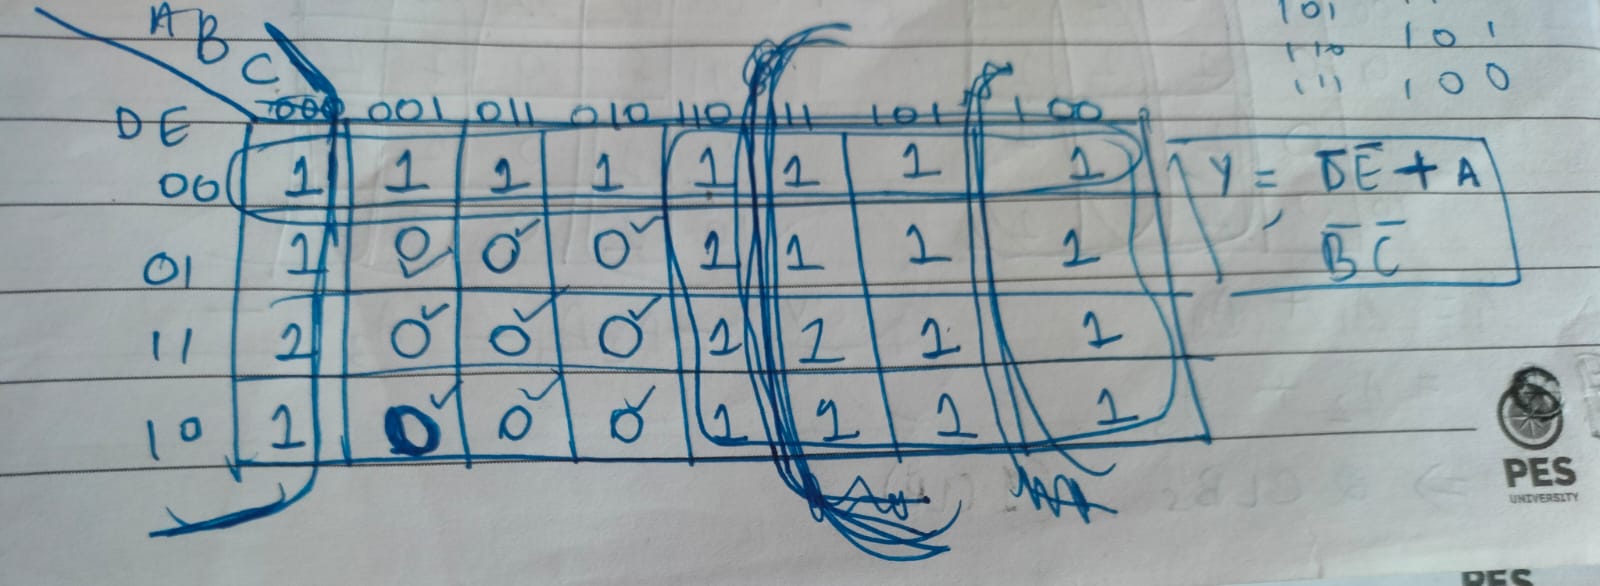 101
A B C
110 101
111 100
D E 000 001 011 010 110 111 101 100
00 1 1 1 1 1 1 1 1
Y = D̅E̅ + A
01 1 0 0 0 1 1 1 1
B̅ C̅
11 1 0 0 0 1 1 1 1
10 1 0 0 0 1 1 1 1
PES
UNIVERSITY
PES